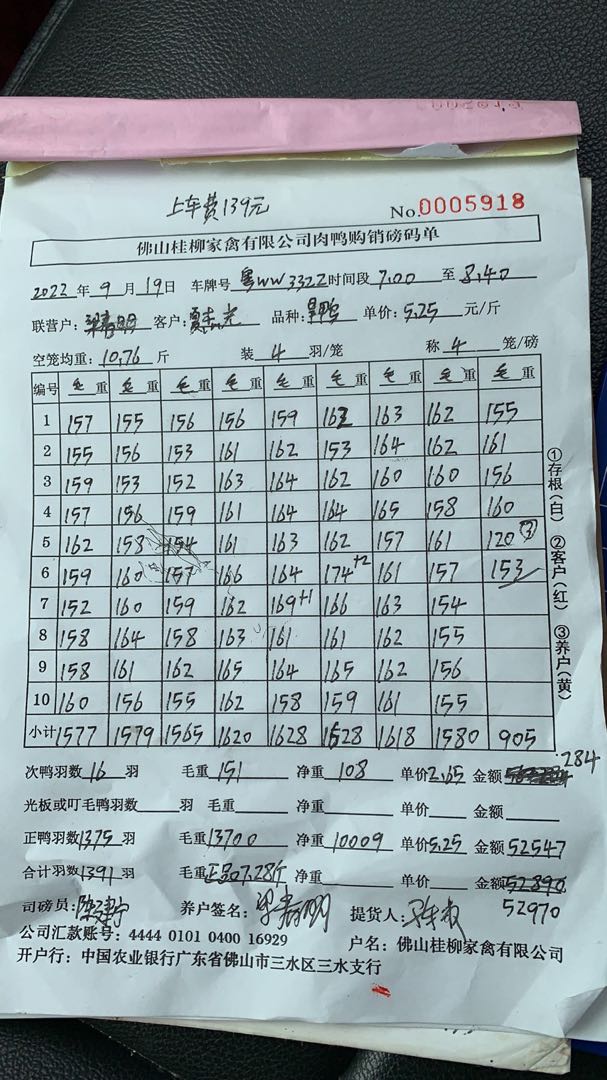 上车费139元
No.0005918
佛山桂柳家禽有限公司肉鸭购销磅码单
2022年9月19日 车牌号 粤WW3322 时间段 7.00 至 8.40
联营户: 客户: 品种: 单价: 5.25 元/斤
空笼均重: 10.76 斤 装 4 羽/笼 称 4 笼/磅
编号 毛重 毛重 毛重 毛重 毛重 毛重 毛重 毛重 毛重
1 157 155 156 156 159 162 163 162 155
2 155 156 153 161 162 153 164 162 161
3 159 153 152 163 164 162 160 160 156
4 157 156 159 161 164 164 165 158 160
5 162 158 154 161 163 162 157 161 120 ③
6 159 160 157 166 164 174+2 161 157 153
7 152 160 159 162 169+1 166 163 154
8 158 164 158 163 161 161 162 155
9 158 161 162 165 164 165 162 156
10 160 156 155 162 158 159 161 155
小计 1577 1579 1565 1620 1628 1628 1618 1580 905
①存根(白) ②客户(红) ③养户(黄)
284
次鸭羽数 16 羽 毛重 151 净重 108 单价 2.65 金额
光板或叮毛鸭羽数 羽 毛重 净重 单价 金额
正鸭羽数 1375 羽 毛重 13700 净重 10009 单价 5.25 金额 52547
合计羽数 1391 羽 毛重 正品7.28斤 净重 金额 52890
司磅员: 养户签名: 提货人: 52970
公司汇款账号: 4444 0101 0400 16929 户名: 佛山桂柳家禽有限公司
开户行: 中国农业银行广东省佛山市三水区三水支行